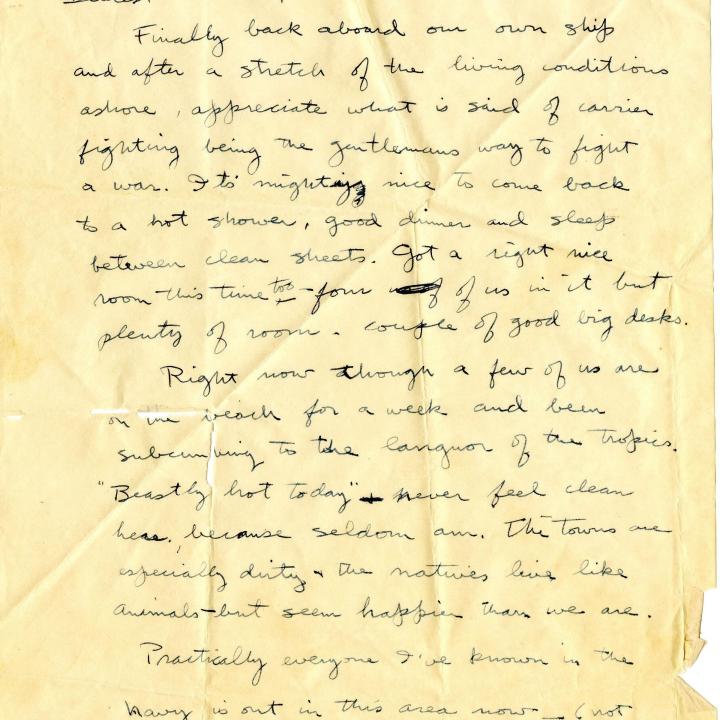 Dearest
Finally back aboard our own ship
and after a stretch of the living conditions
ashore, appreciate what is said of carrier
fighting being the gentlemans way to fight
a war. It's mighty nice to come back
to a hot shower, good dinner and sleep
between clean sheets. Got a right nice
room this time too - four of us in it but
plenty of room - couple of good big desks.
Right now though a few of us are
on the beach for a week and been
subcumbing to the languor of the tropics.
"Beastly hot today" - never feel clean
here, because seldom am. The towns are
especially dirty & the natives live like
animals - but seem happier than we are.
Practically everyone I've known in the
Navy is out in this area now - (not